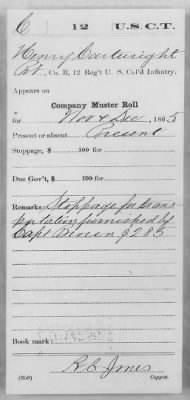 C 12 U.S.C.T.
Henry Cartwright
Pvt., Co. B, 12 Reg't U. S. Col'd Infantry.
Appears on
Company Muster Roll
for Nov & Dec, 1865
Present or absent Present
Stoppage, $ 100 for
Due Gov't, $ 100 for
Remarks: Stoppage for trans
portation furnished by
Capt $2.85
Book mark:
R C Jones
(358) Copyist.